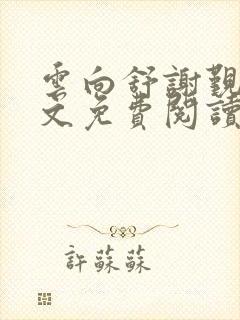 雲向舒謝覲
文免費閱讀
許蘇蘇